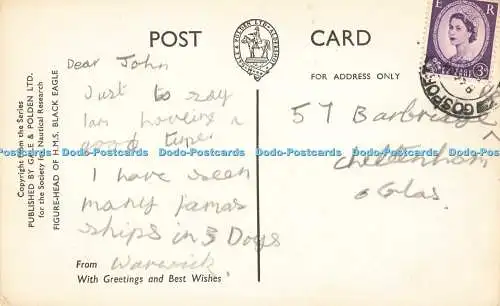 POST CARD
GALE & POLDEN LTD. ALDERSHOT
FOR ADDRESS ONLY
Copyright from the Series
PUBLISHED BY GALE & POLDEN LTD.
for the Society for Nautical Research
FIGURE-HEAD OF H.M.S. BLACK EAGLE
Dear John
Just to say
I am haveing a
good
I have seen
many famas
ships in 3 Days
From Warwick
With Greetings and Best Wishes
57
Cheltenham
Glos
E R
3D
GOSPORT
Dodo-Postcards Dodo-Postcards Dodo-Postcards Dodo-Postcards Dodo-Postcards Dodo-Postcards